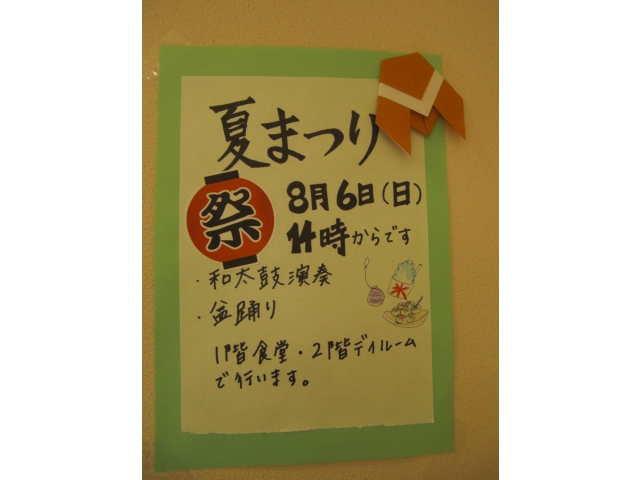 夏まつり
祭
8月6日(日)
14時からです
・和太鼓演奏
・盆踊り
1階食堂・2階デイルーム
で行います。
氷